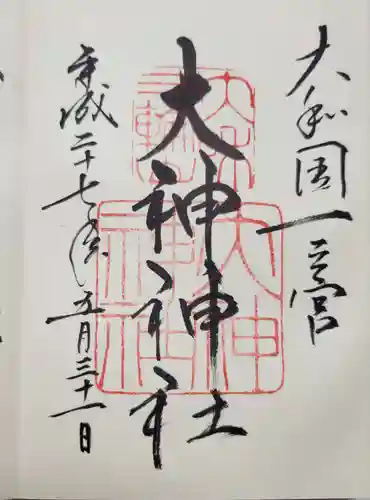 大和国一之宮
大神神社
平成二十七年五月三十一日
三輪山
大神神社